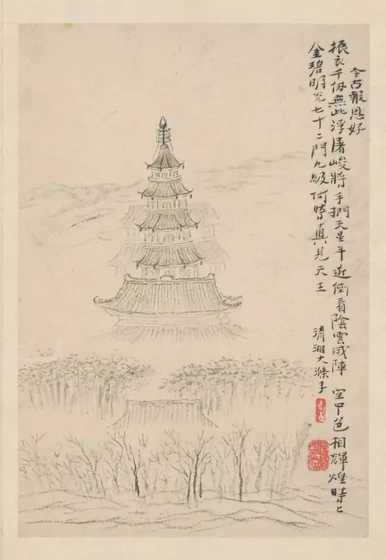 今古報恩好
振衣千仞無此浮屠峻將手捫天星斗近倒看陰雲成陣 空中色相輝煌時上
金碧明光七十二門九級何時真見天王
清湘大滌子